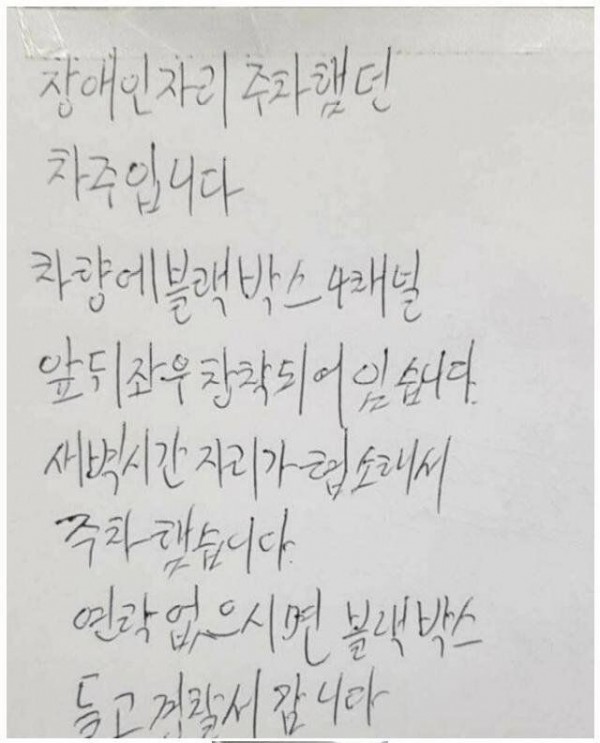 장애인자리 주차햄던
차주입니다
차량에블랙박스 4채널
앞뒤좌우 장착되어 있습니다.
새벽시간 자리가 협소래서
주차 했습니다.
연락 없으시면 블랙박스
들고 경찰서 갑니다